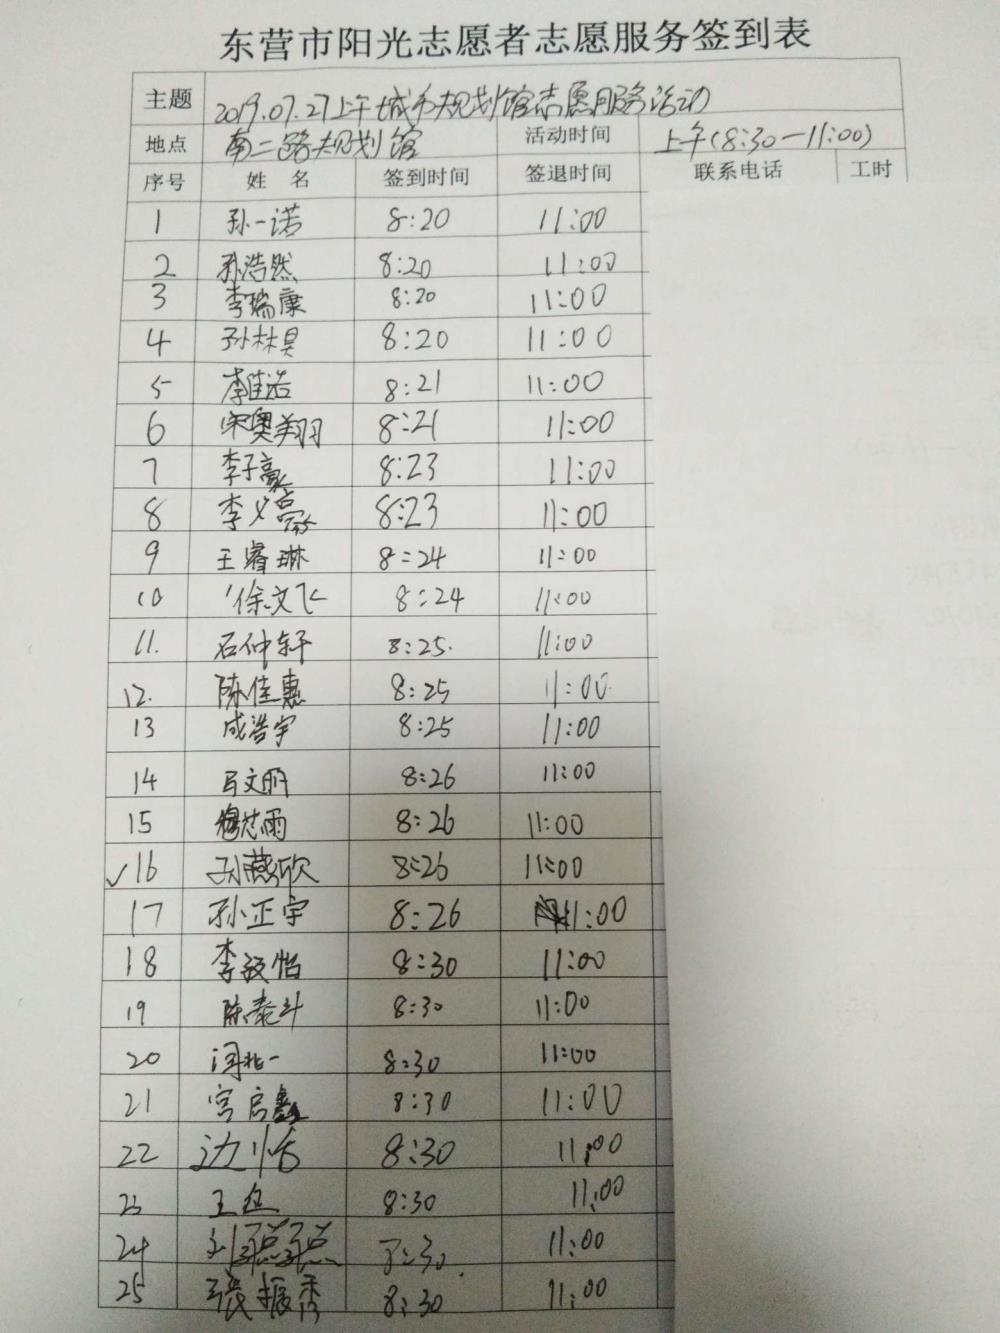 东营市阳光志愿者志愿服务签到表
主题 2019.07.27上午城市规划馆志愿服务活动
地点 南二路规划馆 活动时间 上午(8:30—11:00)
序号 姓名 签到时间 签退时间 联系电话 工时
1 孙一诺 8:20 11:00
2 孙浩然 8:20 11:00
3 李瑞康 8:20 11:00
4 孙林昊 8:20 11:00
5 李佳诺 8:21 11:00
6 宋奥翔 8:21 11:00
7 李子豪 8:23 11:00
8 李义豪 8:23 11:00
9 王睿琳 8:24 11:00
10 徐文飞 8:24 11:00
11. 石仲轩 8:25. 11:00
12. 陈佳惠 8:25 11:00
13 成浩宇 8:25 11:00
14 马文朋 8:26 11:00
15 穆志雨 8:26 11:00
✓16 孙燕欣 8:26 11:00
17 孙正宇 8:26 11:00
18 李毅怡 8:30 11:00
19 陈泰斗 8:30 11:00
20 闫北一 8:30 11:00
21 宫启鑫 8:30 11:00
22 边怡 8:30 11:00
23 王 8:30 11:00
24 刘 8:30 11:00
25 张振秀 8:30 11:00